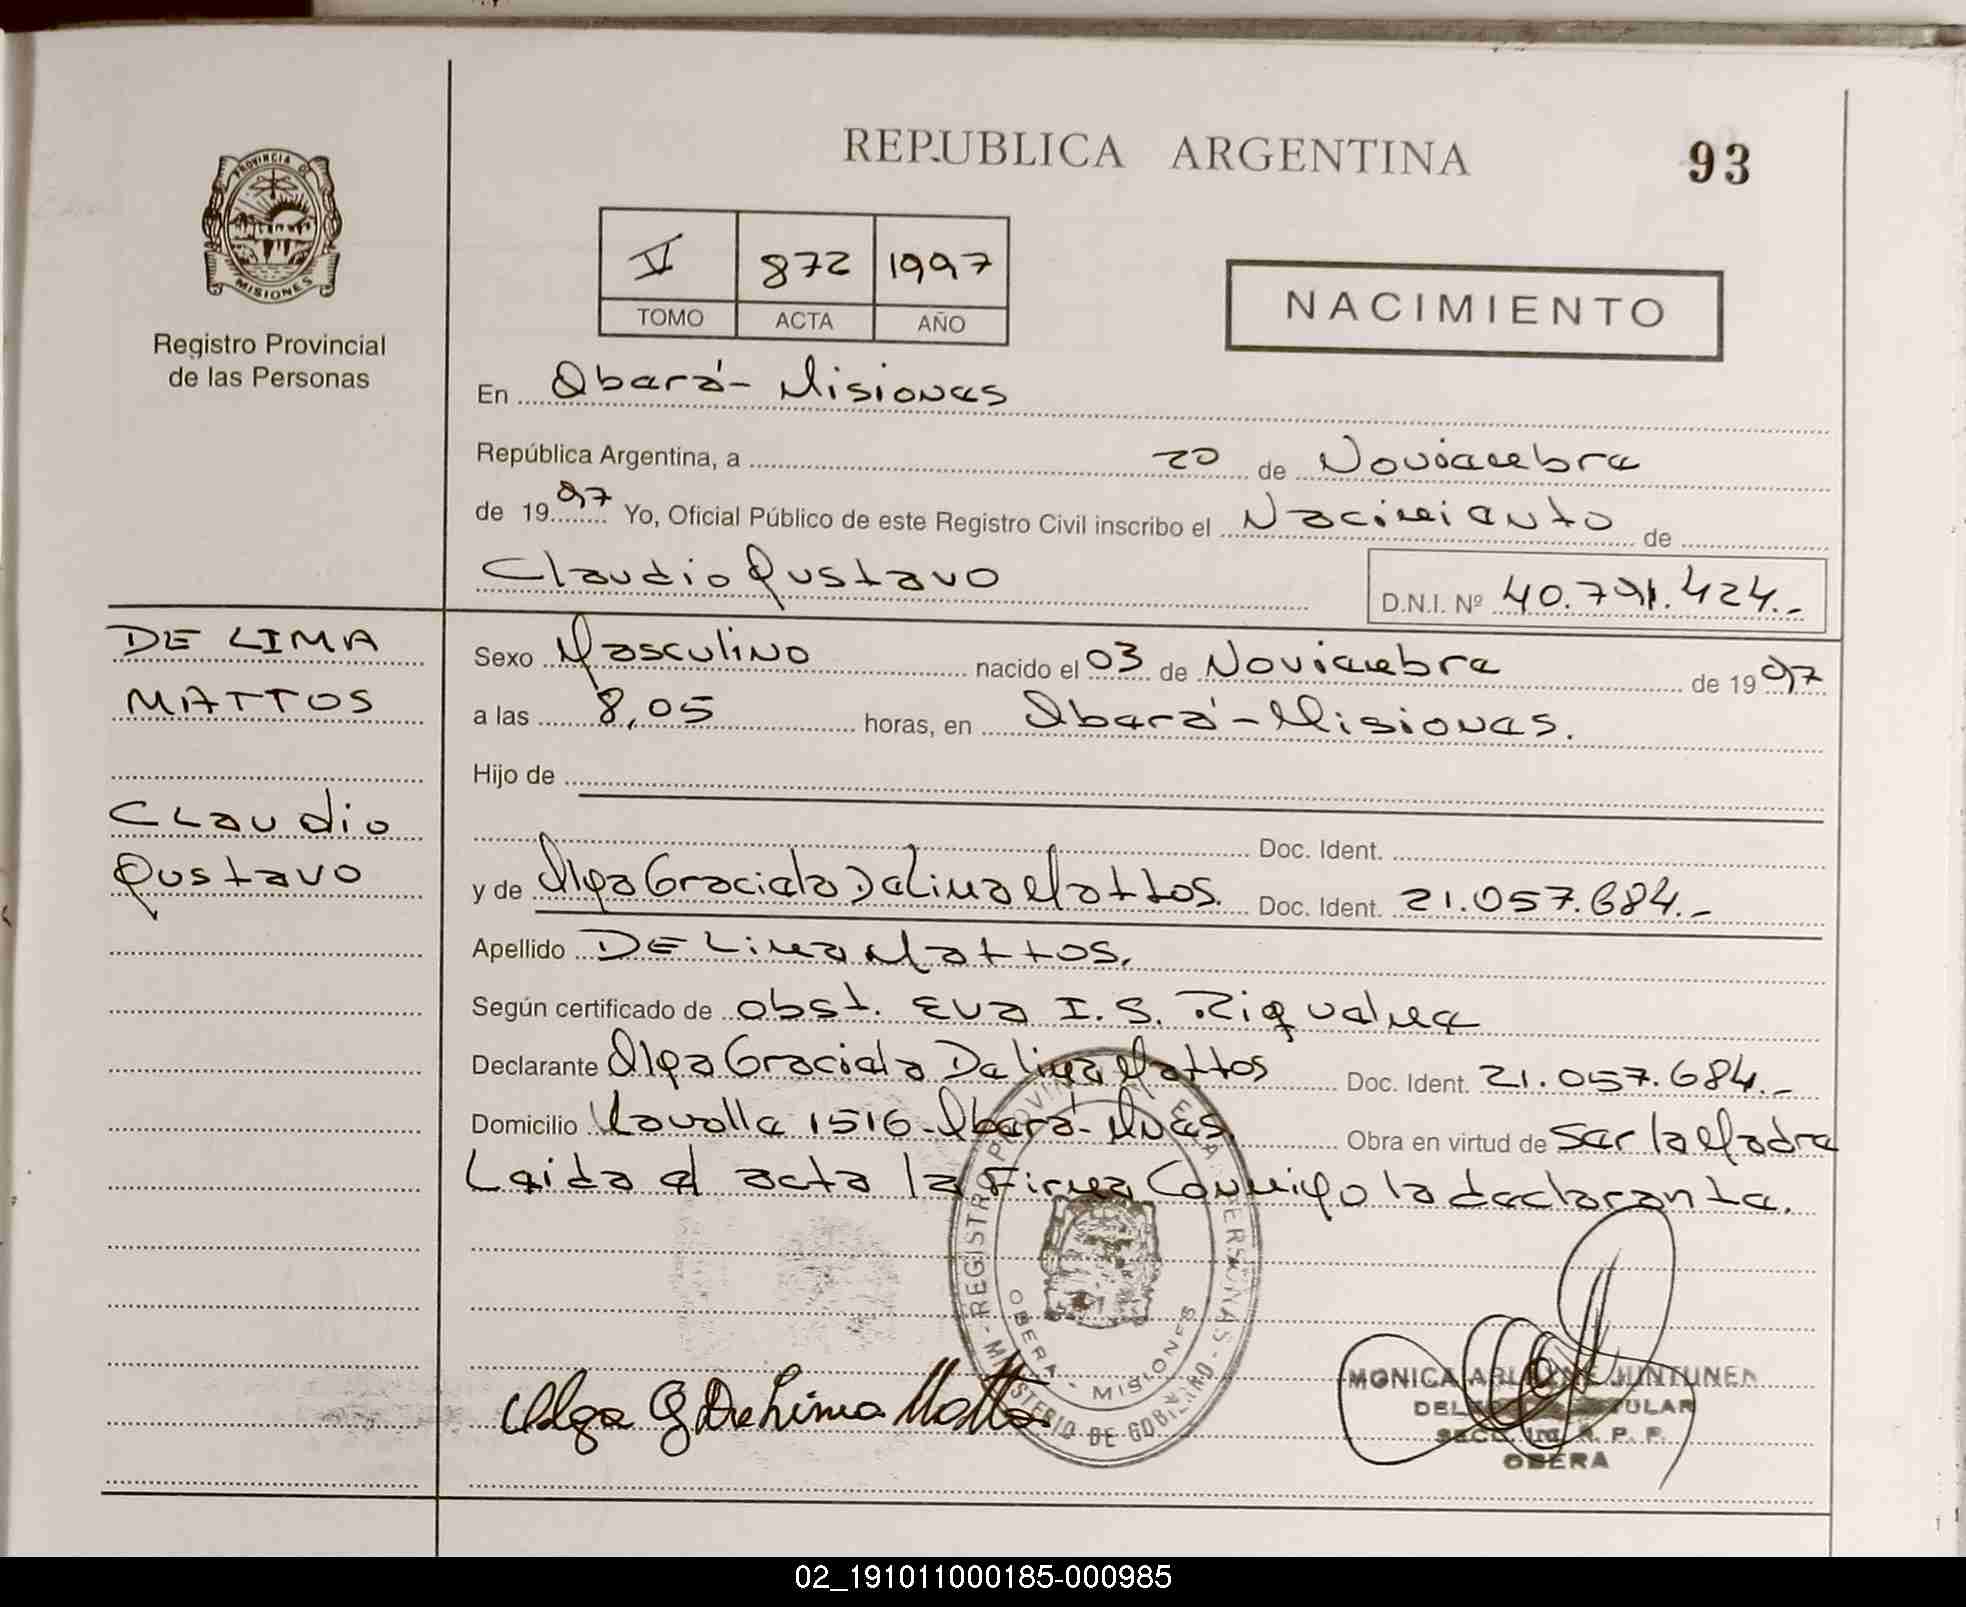 REPUBLICA ARGENTINA
93
PROVINCIA DE MISIONES
Registro Provincial
de las Personas
V 872 1997
TOMO ACTA AÑO
NACIMIENTO
En Oberá - Misiones
República Argentina, a 20 de Noviembre
de 1997 Yo, Oficial Público de este Registro Civil inscribo el Nacimiento de
Claudio Gustavo D.N.I. Nº 40.791.424.-
DE LIMA
MATTOS
Claudio
Gustavo
Sexo Masculino nacido el 03 de Noviembre de 1997
a las 8,05 horas, en Oberá - Misiones.
Hijo de
Doc. Ident.
y de Olga Graciela De Lima Mattos. Doc. Ident. 21.057.684.-
Apellido DE Lima Mattos.
Según certificado de Obst. Eva I. S.
Declarante Olga Graciela De Lima Mattos Doc. Ident. 21.057.684.-
Domicilio 1516 - Oberá - Mnes. Obra en virtud de Ser la Madre
Leida el acta la Firma Conmigo la declarante.
REGISTRO PROVINCIAL DE LAS PERSONAS
MINISTERIO DE GOBIERNO
OBERA - MISIONES
Olga G De Lima Mattos
MONICA HINTUNEN
TITULAR
R. P. P.
OBERA
02_191011000185-000985